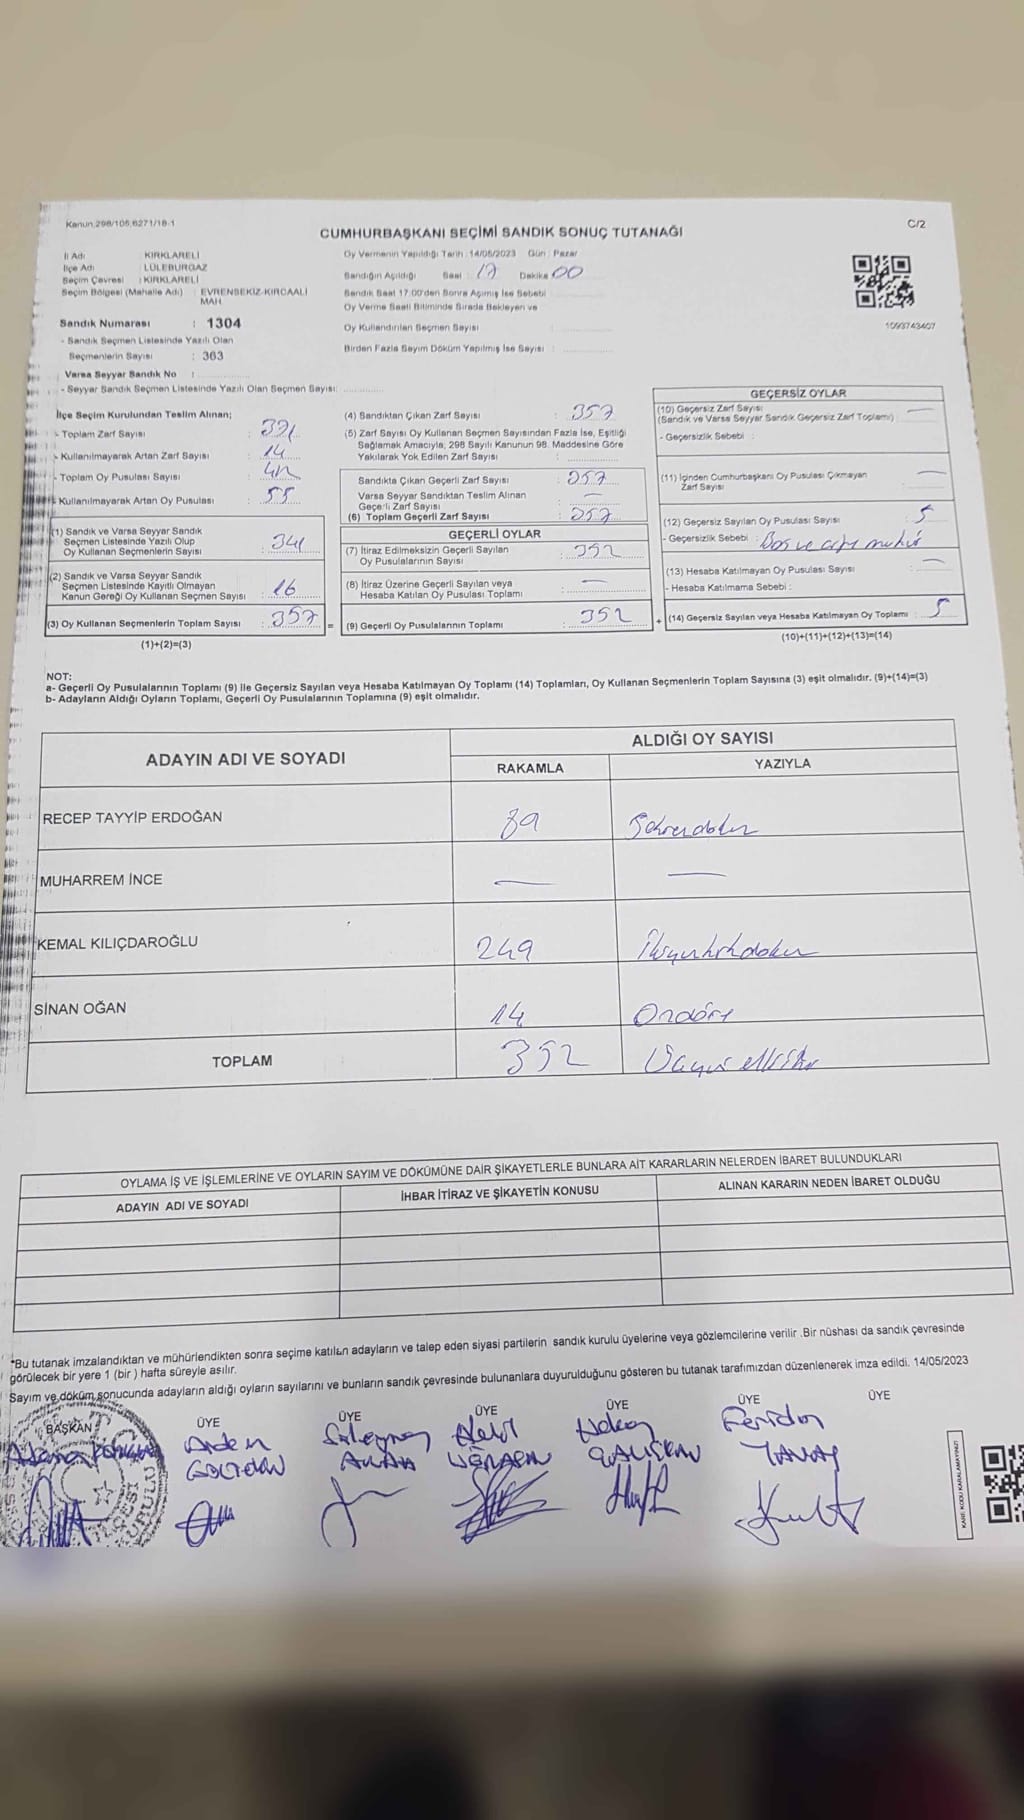 Kanun;298/105;6271/18-1
C/2
CUMHURBAŞKANI SEÇİMİ SANDIK SONUÇ TUTANAĞI
İl Adı : KIRKLARELİ
İlçe Adı : LÜLEBURGAZ
Seçim Çevresi : KIRKLARELİ
Seçim Bölgesi (Mahalle Adı) : EVRENSEKİZ-KIRCAALİ
MAH.
Sandık Numarası : 1304
- Sandık Seçmen Listesinde Yazılı Olan
Seçmenlerin Sayısı : 363
Varsa Seyyar Sandık No :
- Seyyar Sandık Seçmen Listesinde Yazılı Olan Seçmen Sayısı:
Oy Vermenin Yapıldığı Tarih :14/05/2023 Gün : Pazar
Sandığın Açıldığı Saat : 17 Dakika 00
Sandık Saat 17:00'den Sonra Açılmış İse Sebebi
Oy Verme Saati Bitiminde Sırada Bekleyen ve
Oy Kullandırılan Seçmen Sayısı :
Birden Fazla Sayım Döküm Yapılmış İse Sayısı :
1093743407
İlçe Seçim Kurulundan Teslim Alınan;
- Toplam Zarf Sayısı :
- Kullanılmayarak Artan Zarf Sayısı : 14
- Toplam Oy Pusulası Sayısı :
- Kullanılmayarak Artan Oy Pusulası : 55
(1) Sandık ve Varsa Seyyar Sandık
Seçmen Listesinde Yazılı Olup
Oy Kullanan Seçmenlerin Sayısı : 341
(2) Sandık ve Varsa Seyyar Sandık
Seçmen Listesinde Kayıtlı Olmayan
Kanun Gereği Oy Kullanan Seçmen Sayısı : 16
(3) Oy Kullanan Seçmenlerin Toplam Sayısı : 357 =
(1)+(2)=(3)
(4) Sandıktan Çıkan Zarf Sayısı : 357
(5) Zarf Sayısı Oy Kullanan Seçmen Sayısından Fazla İse, Eşitliği
Sağlamak Amacıyla; 298 Sayılı Kanunun 98. Maddesine Göre
Yakılarak Yok Edilen Zarf Sayısı :
Sandıkta Çıkan Geçerli Zarf Sayısı : 357
Varsa Seyyar Sandıktan Teslim Alınan
Geçerli Zarf Sayısı : —
(6) Toplam Geçerli Zarf Sayısı : 357
GEÇERLİ OYLAR
(7) İtiraz Edilmeksizin Geçerli Sayılan
Oy Pusulasının Sayısı : 352
(8) İtiraz Üzerine Geçerli Sayılan veya
Hesaba Katılan Oy Pusulası Toplamı : —
(9) Geçerli Oy Pusulalarının Toplamı : 352 +
GEÇERSİZ OYLAR
(10) Geçersiz Zarf Sayısı
(Sandık ve Varsa Seyyar Sandık Geçersiz Zarf Toplamı) : —
- Geçersizlik Sebebi :
(11) İçinden Cumhurbaşkanı Oy Pusulası Çıkmayan
Zarf Sayısı : —
(12) Geçersiz Sayılan Oy Pusulası Sayısı : 5
- Geçersizlik Sebebi : Boş ve çift mühür
(13) Hesaba Katılmayan Oy Pusulası Sayısı : —
- Hesaba Katılmama Sebebi :
(14) Geçersiz Sayılan veya Hesaba Katılmayan Oy Toplamı : 5
(10)+(11)+(12)+(13)=(14)
NOT:
a- Geçerli Oy Pusulalarının Toplamı (9) ile Geçersiz Sayılan veya Hesaba Katılmayan Oy Toplamı (14) Toplamları, Oy Kullanan Seçmenlerin Toplam Sayısına (3) eşit olmalıdır. (9)+(14)=(3)
b- Adayların Aldığı Oyların Toplamı, Geçerli Oy Pusulalarının Toplamına (9) eşit olmalıdır.
ADAYIN ADI VE SOYADI ALDIĞI OY SAYISI
RAKAMLA YAZIYLA
RECEP TAYYİP ERDOĞAN 89 Seksendokuz
MUHARREM İNCE — —
KEMAL KILIÇDAROĞLU 249 İkiyüzkırkdokuz
SİNAN OĞAN 14 Ondört
TOPLAM 352 Üçyüz elliiki
OYLAMA İŞ VE İŞLEMLERİNE VE OYLARIN SAYIM VE DÖKÜMÜNE DAİR ŞİKAYETLERLE BUNLARA AİT KARARLARIN NELERDEN İBARET BULUNDUKLARI
ADAYIN ADI VE SOYADI İHBAR İTİRAZ VE ŞİKAYETİN KONUSU ALINAN KARARIN NEDEN İBARET OLDUĞU
*Bu tutanak imzalandıktan ve mühürlendikten sonra seçime katılan adayların ve talep eden siyasi partilerin sandık kurulu üyelerine veya gözlemcilerine verilir .Bir nüshası da sandık çevresinde
görülecek bir yere 1 (bir ) hafta süreyle asılır.
Sayım ve döküm sonucunda adayların aldığı oyların sayılarını ve bunların sandık çevresinde bulunanlara duyurulduğunu gösteren bu tutanak tarafımızdan düzenlenerek imza edildi. 14/05/2023
BAŞKAN ÜYE ÜYE ÜYE ÜYE ÜYE ÜYE
Süleyman Feridun
ÇALIŞKAN
KARE KODU KARALAMAYINIZ!